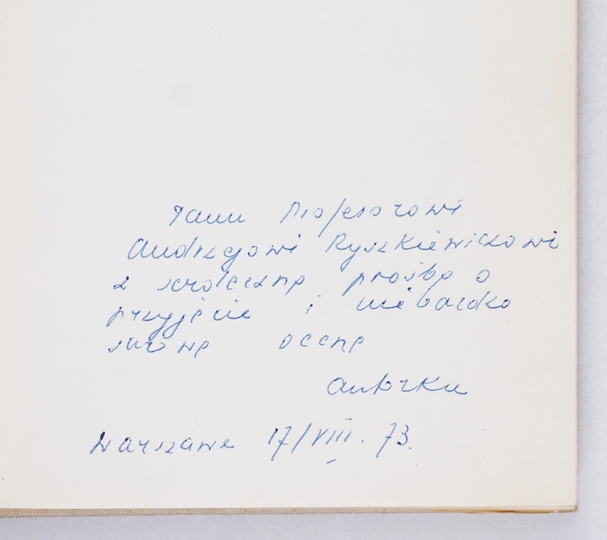 Panu Profesorowi
Andrzejowi Ryszkiewiczowi
z serdeczną prośbą o
przyjęcie i nie bardzo
surową ocenę
autorka
Warszawa 17/VIII. 73.